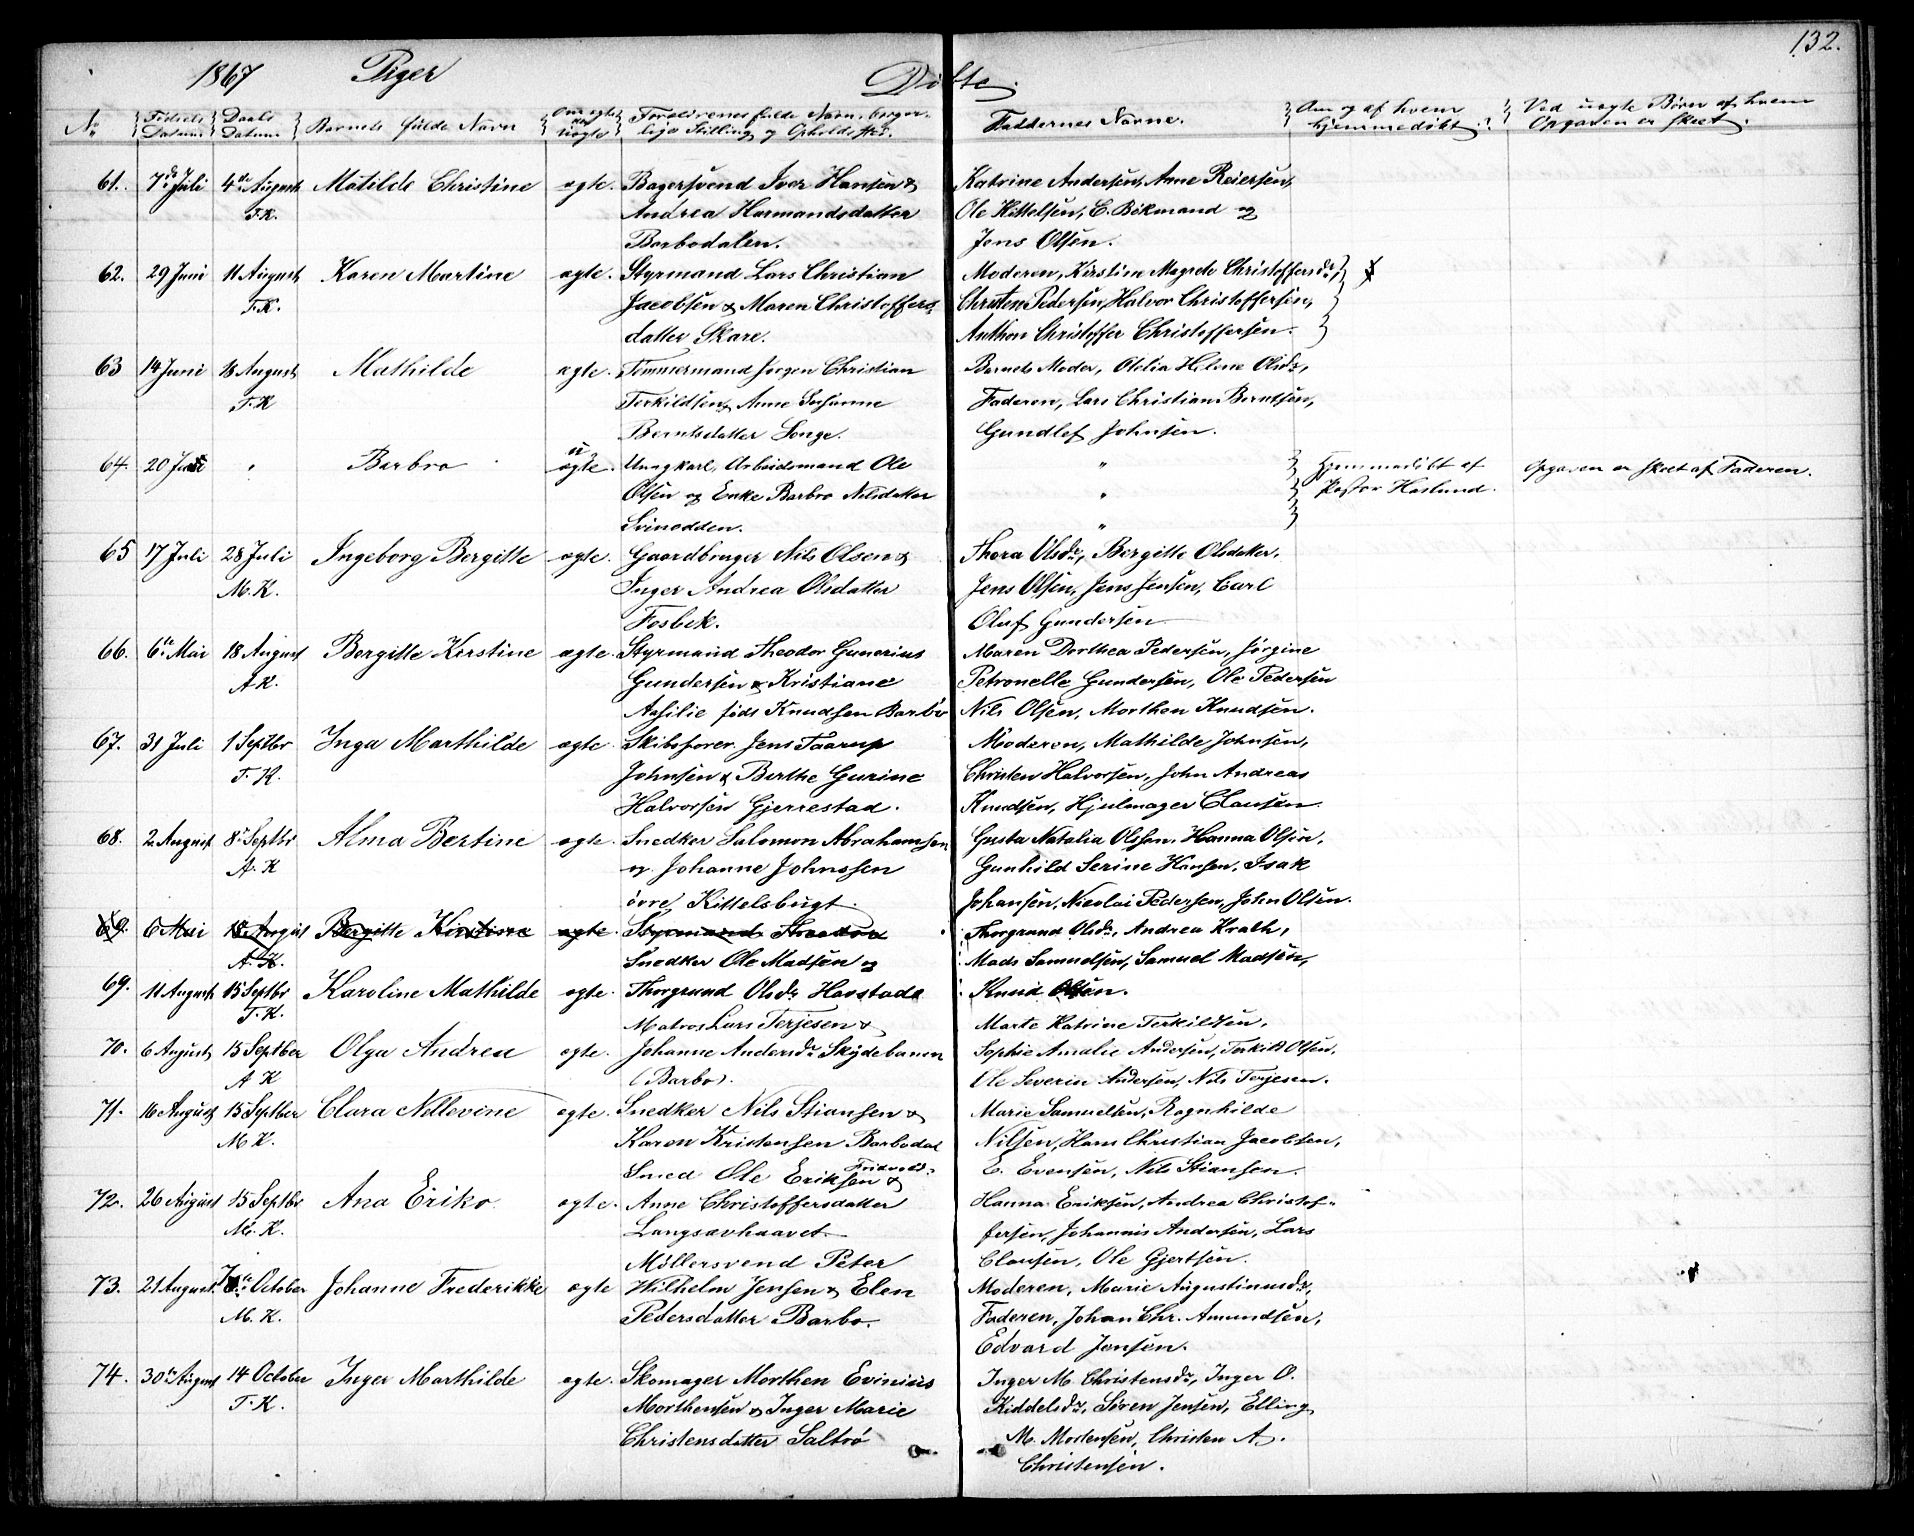 132.
1867 Piger Döbte.
No Fødsels Datum Daabs Datum Barnets fulde Navn Om ægte eller uægte Forældrenes fulde Navn, borgerlige Stilling og Opholdssted. Faddernes Navne. Om og af hvem hjemmedöbt? Ved uægte Børn af hvem Opgaven er skeet.
61. 7de Juli 4de August Matilde Christine ægte. Bagersvend Iver Hansen & Katrine Andersen, Anne Reiersen,
F.K. Andrea Harmandsdatter Ole Kittelsen, C. Bekmand og
Barbodalen. Jens Olsen.
62. 29 Juni 11 August Karen Martine ægte. Styrmand Lars Christian Moderen, Kirstine Magrete Christoffersdr,
F.K. Jacobsen & Maren Christoffers Christen Pedersen, Halvor Christoffersen,
datter Skare. Anthon Christoffer Christoffersen.
63 14 Juni 18 August Mathilde ægte. Tømmermand Jørgen Christian Barnets Moder, Otelia Helene Olsdr,
F.K Terkildsen & Anne Susanne Faderen, Lars Christian Berntsen,
Berntsdatter Songe. Gundlef Johnsen.
64. 20 Juni " Barbro uægte. Ungkarl, Arbeidsmand Ole " Hjemmedöbt af Opgaven er skeet af Faderen.
Olsen og Enke Barbro Nilsdatter " Pastor Haslund.
Svinodden. "
65 17 Juli 28 Juli Ingeborg Bergitte ægte. Gaardbruger Nils Olsen & Thora Olsdr, Bergitte Olsdatter,
M.K. Inger Andrea Olsdatter Jens Olsen, Jens Jensen, Carl
Fosbek. Oluf Gundersen
66. 6te Mai 18 August Bergitte Kirstine ægte. Styrmand Theodor Gunerius Maren Dorthea Pedersen, Jørgine
A K. Gundersen & Kristiane Petronelle Gundersen, Ole Pedersen
Aasilie föds Knudsen Barbo Nils Olsen, Morthen Knudsen.
67. 31 Juli 1 Septbr Inga Marthilde ægte Skibsfører Jens Taarup Moderen, Mathilde Johnsen,
F. K. Johnsen & Berthe Gurine Christen Halvorsen, John Andreas
Halvorsen Gjerrestad. Knudsen, Hjulmager Clausen
68. 2. August 8. Septbr Alma Bertine ægte. Snedker Salomon Abrahamsen Gusta Natalia Olsson, Hanna Olsen,
A. K og Johanne Johnssen Gunhild Serine Hansen, Isak
övre Kittelsbugt. Johansen, Nicolai Pedersen, John Olsen.
69. 6 Mai 18 August Bergitte Kirstine ægte. Styrmand Theodor Thorgrund Olsdr, Andrea Krath,
A. K. Snedker Ole Madsen og Mads Samuelsen, Samuel Madsen,
69. 11 August 15 Septbr Karoline Mathilde ægte. Thorgrund Olsdr Havstade Knud Olsen.
F. K. Matros Lars Terjesen & Marte Katrine Terkildsen,
70. 6 August 15 Septber Olga Andrea ægte. Johanne Andersdr Skydebanen Sophie Amalie Andersen, Terkild Olsen,
A K (Barbo). Ole Severin Andersen, Nils Terjesen.
71. 16 August 15 Septber Clara Nellevine ægte. Snedker Nils Stiansen & Marie Samuelsen, Ragnhilde
M. K. Karen Kristensen Barbodal Nilsen, Hans Christian Jacobsen,
Smed Ole Eriksen & E. Evensen, Nils Stiansen.
72. 26 August 15 Septbr Ana Eriko ægte. Anne Christoffersdatter Hanna Eriksen, Andrea Christof-
M. K. Langsævhaavet fersen, Johannis Andersen, Lars
Möllersvend Peter Clausen, Ole Gjertsen.
73. 21 August October Johanne Frederikke ægte Wilhelm Jensen & Elen Moderen, Marie Augustinusdr,
M. K. Pedersdatter Barbo. Faderen, Johan Chr. Amundsen,
Edvard Jensen.
74. 30te August 14 October Inger Marthilde ægte. Skomager Morthen Evinius Inger M. Christensdr, Inger O.
F. K. Morthensen & Inger Marie Kiddelsdr, Søren Jensen, Elling
Christensdatter Saltrö M. Mortensen, Christen A.
Christensen.